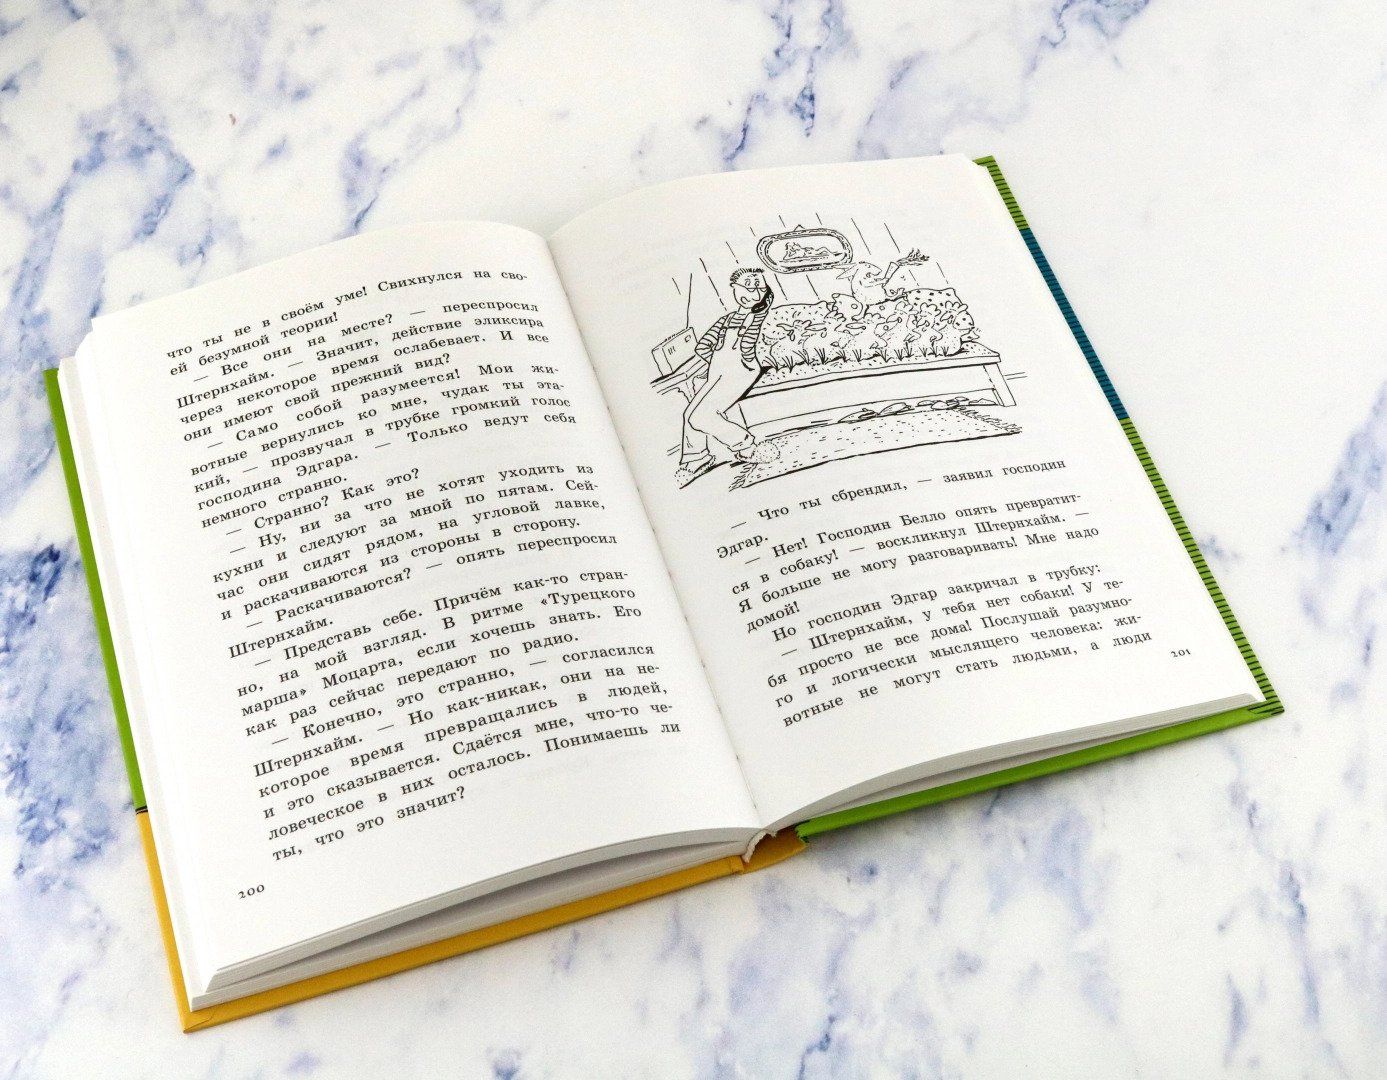 что ты не в своём уме! Свихнулся на сво-
ей безумной теории!
— Все они на месте? — переспросил
Штернхайм. — Значит, действие эликсира
через некоторое время ослабевает. И все
они имеют свой прежний вид?
— Само собой разумеется! Мои жи-
вотные вернулись ко мне, чудак ты эта-
кий, — прозвучал в трубке громкий голос
господина Эдгара. — Только ведут себя
немного странно.
— Странно? Как это?
— Ну, ни за что не хотят уходить из
кухни и следуют за мной по пятам. Сей-
час они сидят рядом, на угловой лавке,
и раскачиваются из стороны в сторону.
— Раскачиваются? — опять переспросил
Штернхайм.
— Представь себе. Причём как-то стран-
но, на мой взгляд. В ритме «Турецкого
марша» Моцарта, если хочешь знать. Его
как раз сейчас передают по радио.
— Конечно, это странно, — согласился
Штернхайм. — Но как-никак, они на не-
которое время превращались в людей,
и это сказывается. Сдаётся мне, что-то че-
ловеческое в них осталось. Понимаешь ли
ты, что это значит?
200
— Что ты сбрендил, — заявил господин
Эдгар.
— Нет! Господин Белло опять превратит-
ся в собаку! — воскликнул Штернхайм. —
Я больше не могу разговаривать! Мне надо
домой!
Но господин Эдгар закричал в трубку:
— Штернхайм, у тебя нет собаки! У те-
бя просто не все дома! Послушай разумно-
го и логически мыслящего человека: жи-
вотные не могут стать людьми, а люди
201